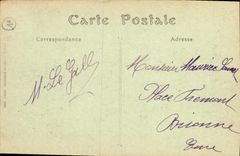 Carte Postale
Correspondance
Adresse
M. Le Gall
Monsieur Maurice
Place Fremont
Brionne
Eure